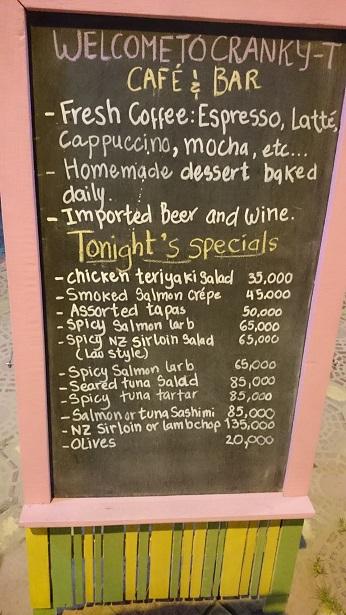 WELCOME TO CRANKY-T
CAFÉ & BAR
- Fresh Coffee: Espresso, Latté,
Cappuccino, mocha, etc...
- Homemade dessert baked
daily.
- Imported Beer and wine.
Tonight's specials
- chicken teriyaki Salad 35,000
- Smoked Salmon Crêpe 45,000
- Assorted tapas 50,000
- Spicy Salmon larb 65,000
- Spicy NZ sirloin Salad 65,000
(Lao style)
- Spicy Salmon larb 65,000
- Seared tuna Salad 85,000
- Spicy tuna tartar 85,000
- Salmon or tuna Sashimi 85,000
- NZ Sirloin or lamb chop 135,000
- OLives 20,000